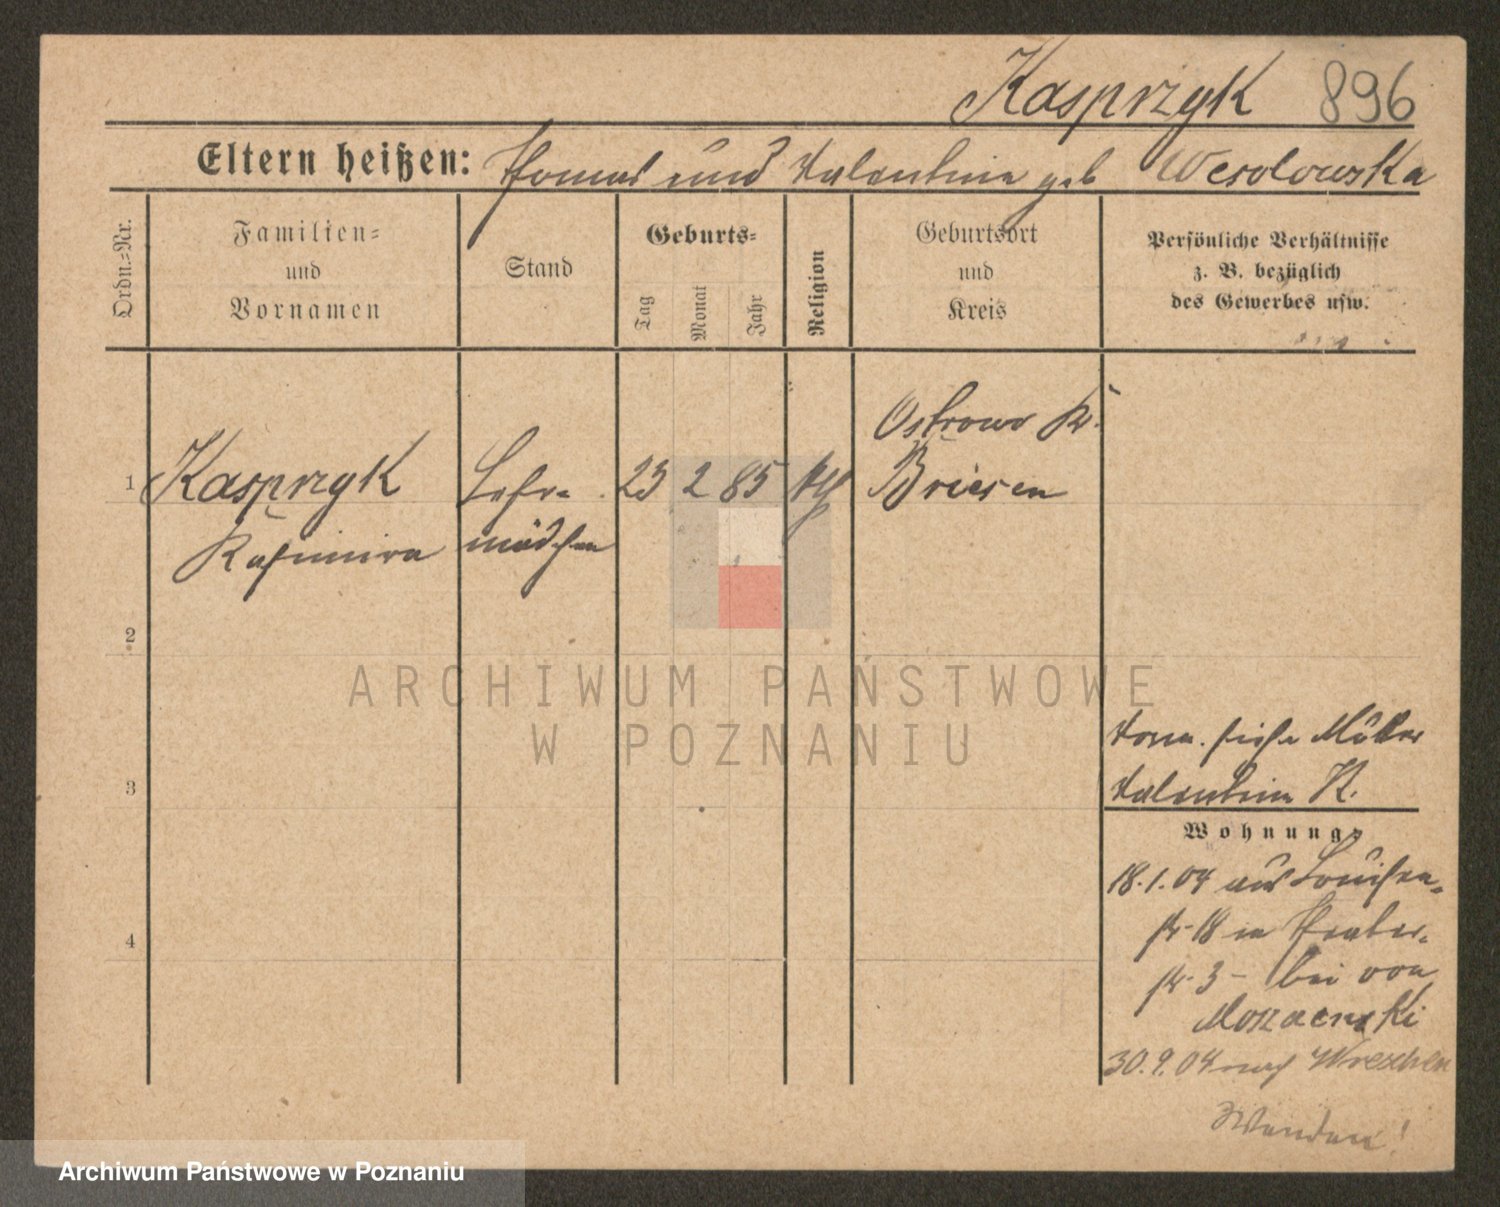 Kasprzyk 896
Eltern heißen: Thomas und Valentina geb Wesolowska
Ordn.-Nr.
Familien-
und
Vornamen
Stand
Geburts-
Tag
Monat
Jahr
Religion
Geburtsort
und
Kreis
Persönliche Verhältnisse
z. B. bezüglich
des Gewerbes usw.
1
Kasprzyk
Kasimira
Lehr-
mädchen
23 2 85
kth
Ostrowo Kr.
Briesen
2
3
4
Vorm. siehe Mutter
Valentina K.
Wohnung
18.1.04 aus Louisen-
str. 18 in
str. 3 - bei von
30.9.04 nach Wreschen
Wenden!
ARCHIWUM PAŃSTWOWE
W POZNANIU
Archiwum Państwowe w Poznaniu